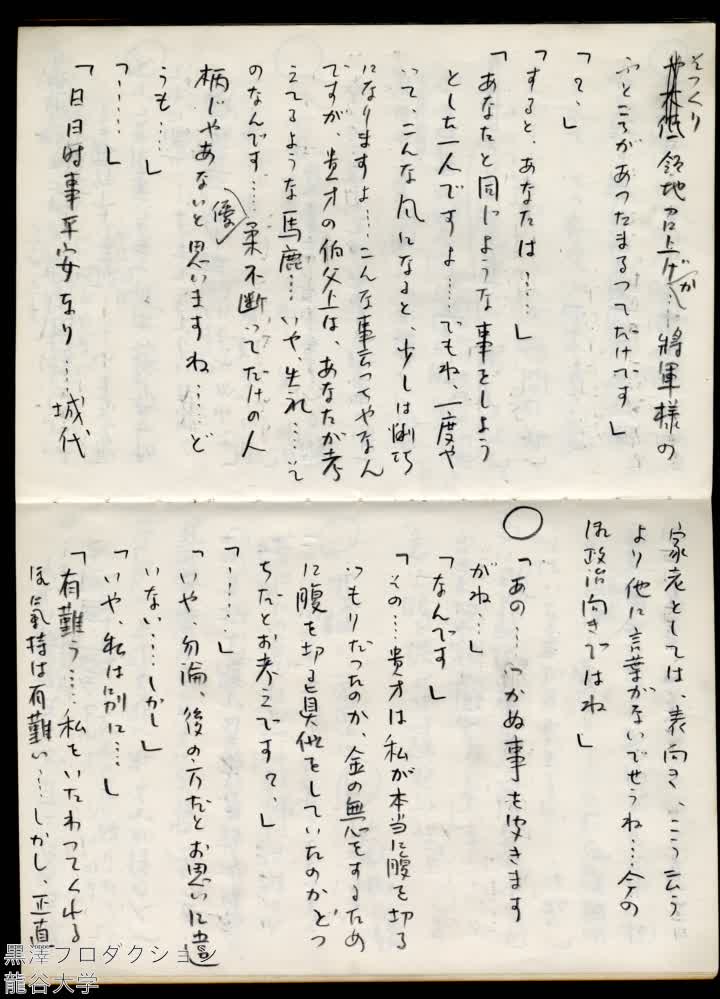 そっくり
領地召上げ…が将軍様の
ふところがあつたまるつてだけです」
「？」
「すると、あなたは……」
「あなたと同じような事をしよう
とした一人ですよ……でもね、一度や
って、こんな風になると、少しは悧巧
になりますよ…こんな事云つちやなん
ですが、貴方の伯父上は、あなたが考
えてるような馬鹿…いや、失礼……そ
のなんです……優柔不断ってだけの人
柄じやあないと思いますね……ど
うも…」
「……」
「日日時事平安なり……城代
家老としては、表向き、こう云う
より他に言葉がないでせうね……今の
御政治向きではね」
○
「あの…つかぬ事を伺きます
がね…」
「なんです」
「その…貴方は私が本当に腹を切る
つもりだつたのか、金の無心をするため
に腹を切る真似をしていたのかどつ
ちだとお考えです？」
「……」
「いや、勿論、後の方だとお思いに違
いない……しかし」
「いや、私は別に…」
「有難う……私をいたわつてくれる
御氣持は有難い……しかし、正直
黒澤プロダクション
龍谷大学